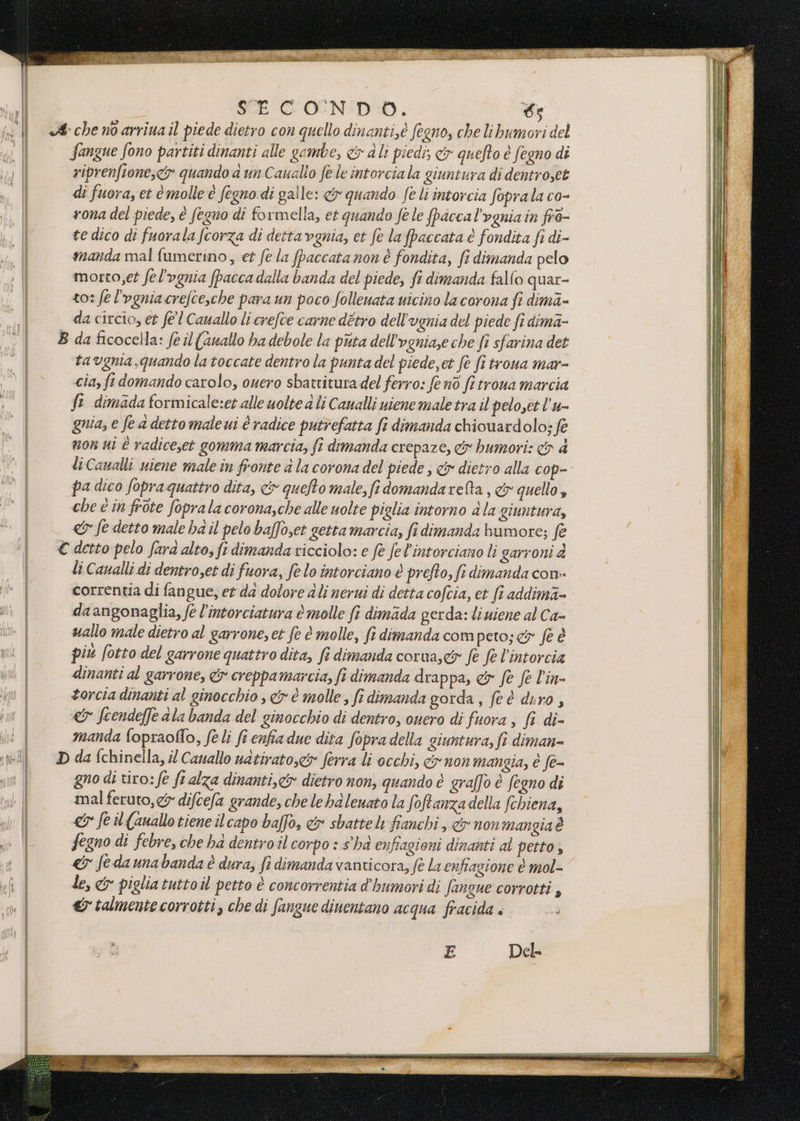 SECONDO. 65
A che nō arriua il piede dietro con quello dinanti,è ſegno, che li humori del
ſangue ſono partiti dinanti alle gambe, & à li piedi; & queſto è ſegno di
riprenſione,& quando à un Cauallo ſe le intorcia la giuntura di dentro,et
di fuora, et è molle è ſegno di galle: & quando ſe li intorcia ſopra la co-
rona del piede, è ſegno di formella, et quando ſe le ſpacca l'vgnia in frō-
te dico di fuora la ſcorza di detta vgnia, et ſe la ſpaccata è fondita ſi di-
manda mal fumerino, et ſe la ſpaccata non è fondita, ſi dimanda pelo
morto,et ſe l'vgnia ſpacca dalla banda del piede, ſi dimanda falſo quar-
to: ſe l'vgnia creſce,che para un poco ſolleuata uicino la corona ſi dimā-
da circio, et ſe'l Cauallo li creſce carne dētro dell'ugnia del piede ſi dimā-
B da ficocella: ſe il Cauallo ha debole la pūta dell'vgnia,e che ſi sfarina det
ta vgnia, quando la toccate dentro la punta del piede,et ſe ſi troua mar-
cia, ſi domando carolo, ouero sbattitura del ferro: ſe nō ſi troua marcia
ſi dimāda formicale:et alle uolte à li Caualli uiene male tra il pelo,et l'u-
gnia, e ſe à detto male ui è radice putrefatta ſi dimanda chiouardolo; ſe
non ui è radice,et gomma marcia, ſi dimanda crepaze, & humori: & à
li Caualli uiene male in fronte à la corona del piede, & dietro alla cop-
pa dico ſopra quattro dita, & queſto male, ſi domanda reſta, & quello,
che è in frōte ſopra la corona,che alle uolte piglia intorno à la giuntura,
& ſe detto male hà il pelo baſſo,et getta marcia, ſi dimanda humore; ſe
C detto pelo ſarà alto, ſi dimanda ricciolo: e ſe ſe l'intorciano li garroni à
li Caualli di dentro,et di fuora, ſe lo intorciano è preſto, ſi dimanda con-
correntia di ſangue, et dà dolore à li nerui di detta coſcia, et ſi addimā-
da angonaglia, ſe l'intorciatura è molle ſi dimāda gerda: li uiene al Ca-
uallo male dietro al garrone, et ſe è molle, ſi dimanda competo; & ſe è
più ſotto del garrone quattro dita, ſi dimanda corua,& ſe ſe l'intorcia
dinanti al garrone, & creppa marcia, ſi dimanda drappa, & ſe ſe l'in-
torcia dinanti al ginocchio, & è molle, ſi dimanda gorda, ſe è duro,
& ſcendeſſe à la banda del ginocchio di dentro, ouero di fuora, ſi di-
manda ſopraoſſo, ſe li ſi enfia due dita ſopra della giuntura, ſi diman-
D da ſchinella, il Cauallo uà tirato,& ferra li occhi, & non mangia, è ſe-
gno di tiro: ſe ſi alza dinanti,& dietro non, quando è graſſo è ſegno di
mal feruto,& diſceſa grande, che le hà leuato la ſoſtanza della ſchiena,
& ſe il Cauallo tiene il capo baſſo, & sbatte li fianchi, & non mangia è
ſegno di febre, che hà dentro il corpo: s'hà enfiagioni dinanti al petto,
& ſe da una banda è dura, ſi dimanda vanticora, ſe la enfiagione è mol-
le, & piglia tutto il petto è concorrentia d'humori di ſangue corrotti,
& talmente corrotti, che di ſangue diuentano acqua fracida.
E Del-